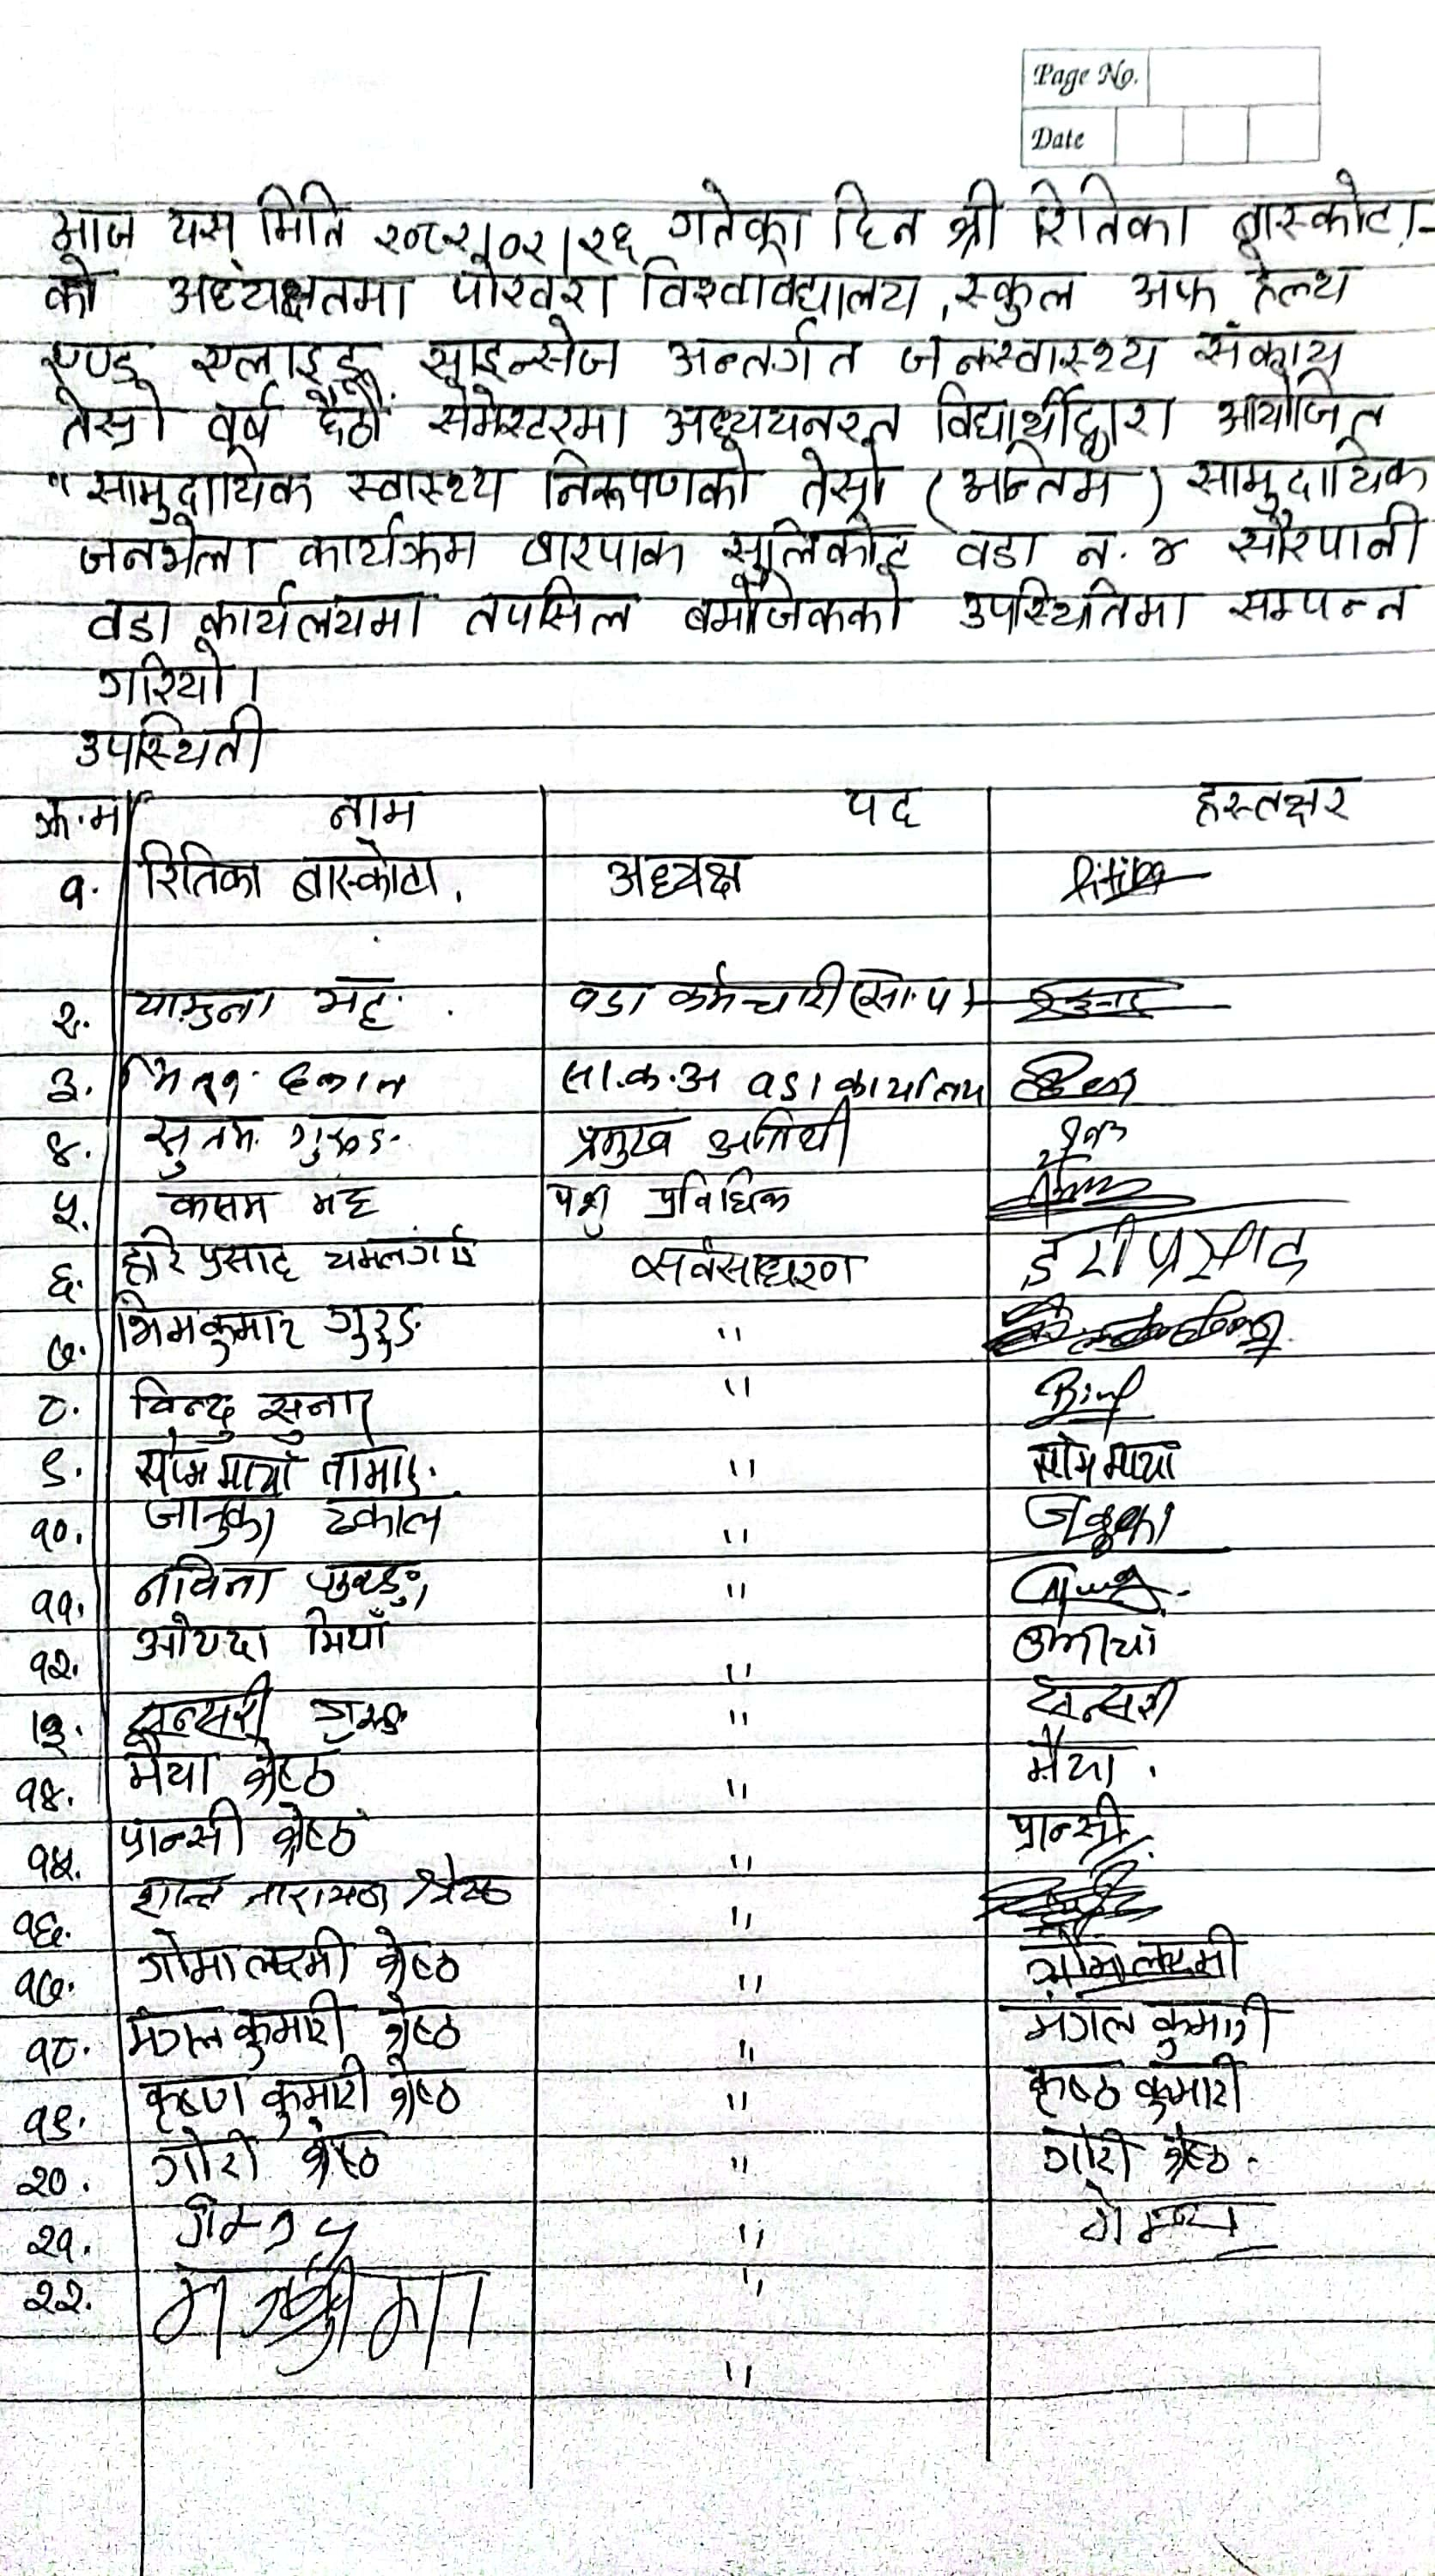 Page No.
Date
आज यस् मिति २०८२।०२।२६ गतेका दिन श्री रितिका बास्कोटा-
को अध्यक्षतमा पोखरा विश्वविद्यालय, स्कुल अफ हेल्थ
एण्ड एलाइड साइन्सेज अन्तर्गत जनस्वास्थ्य संकाय
तेस्रो वर्ष छैठौं सेमेस्टरमा अध्ययनरत विद्यार्थीद्वारा आयोजित
" सामुदायिक स्वास्थ्य निरूपणको तेस्रो (अन्तिम) सामुदायिक
जनभेला कार्यक्रम बारपाक सुलिकोट वडा न. ४ सौरपानी
वडा कार्यलयमा तपसिल बमोजिकको उपस्थितिमा सम्पन्न
गरियो।
उपस्थिती
क्र.म नाम पद हस्तक्षर
१. रितिका बास्कोटा. अध्यक्ष Ritika
२. यामुना भट्ट. वडा कर्मचारी (सो.प)
३. सा.क.अ वडा कार्यालय
४. गुरूङ. प्रमुख अतिथी
५. भट्ट पशु प्रविधिक
६. हरि प्रसाद सर्वसाधरण हरी प्रसाद
७. भिमकुमार गुरुङ "
८. विन्दु सुनार "
९. सोम माया तामाङ. " सोम माया
१०. जानुका ढकाल " जानुका
११. नविना गुरुङ "
१२. मियाँ "
१३. सन्सरी गुरूङ " सन्सरी
१४. मैया श्रेष्ठ " मैया.
१५. प्रान्सी श्रेष्ठ " प्रान्सी
१६. नारायण श्रेष्ठ "
१७. गोमा लक्ष्मी श्रेष्ठ " गोमा लक्ष्मी
१८. मंगल कुमारी श्रेष्ठ " मंगल कुमारी
१९. कृष्ण कुमारी श्रेष्ठ " कृष्ठ कुमारी
२०. गोरी श्रेष्ठ " गोरी श्रेष्ठ.
२१. "
२२. "
"